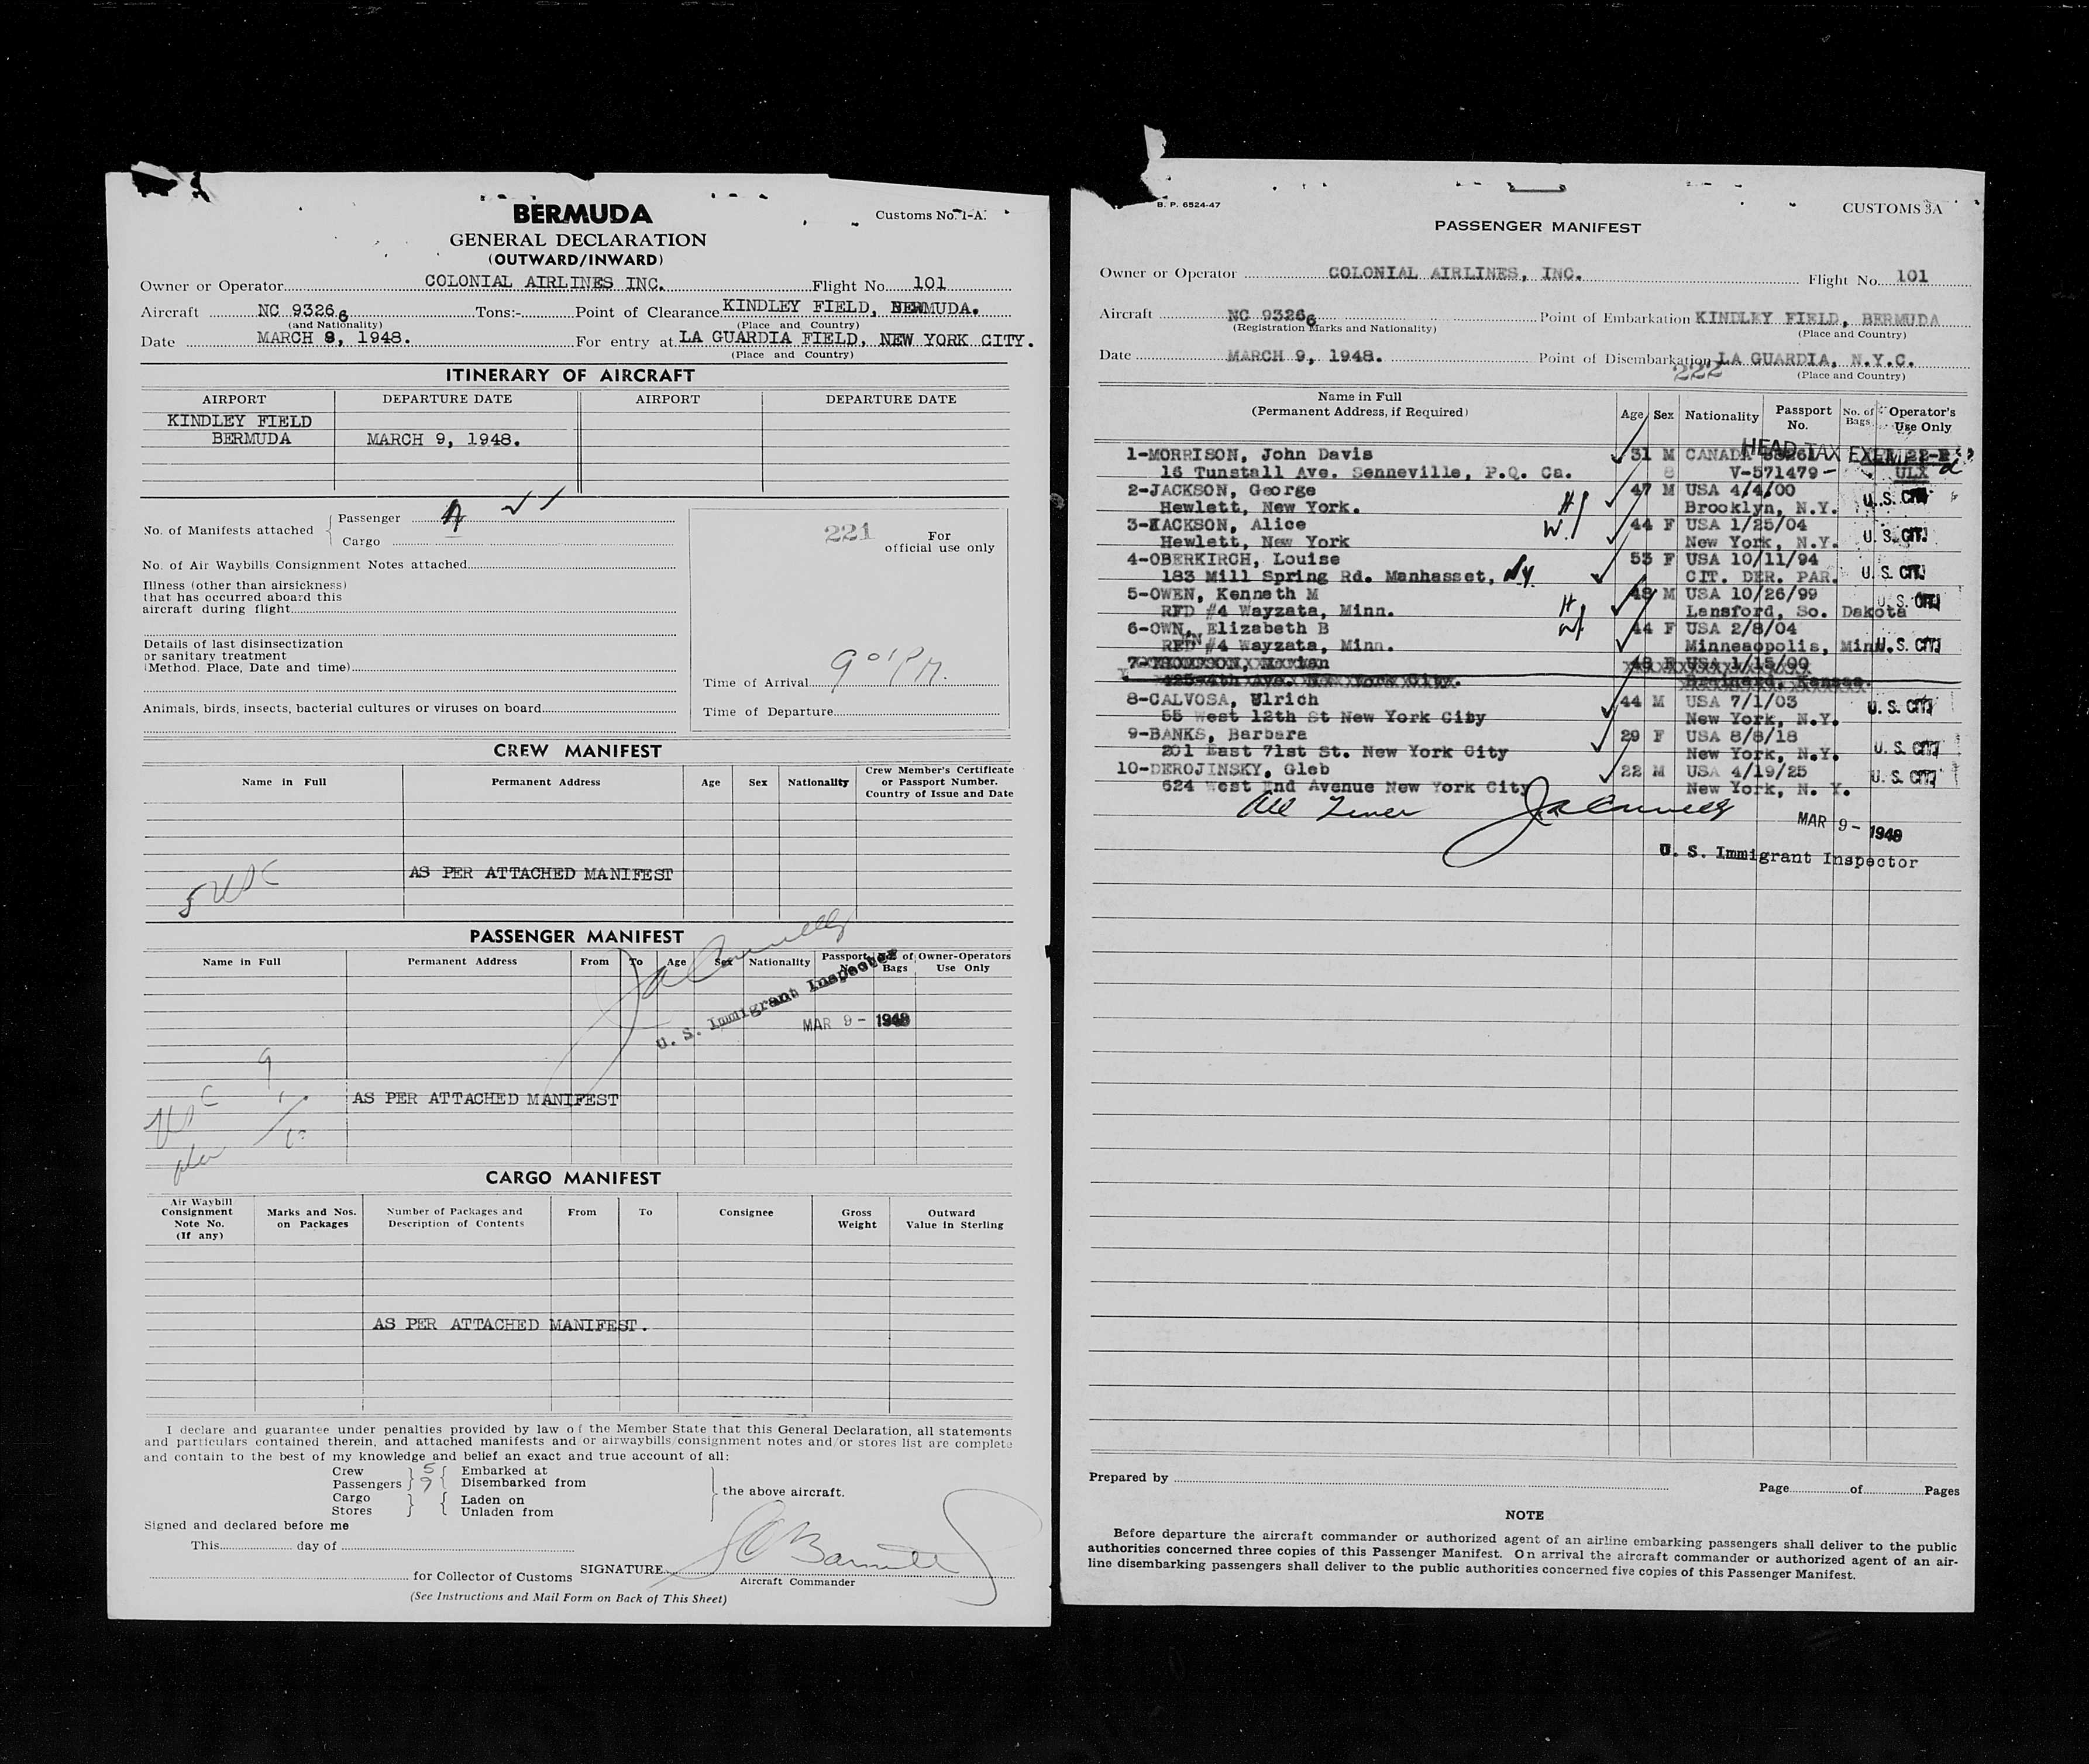 BERMUDA
Customs No. 1-A.
GENERAL DECLARATION
(OUTWARD/INWARD)
Owner or Operator COLONIAL AIRLINES INC. Flight No. 101
Aircraft NC 93266 Tons:- Point of Clearance KINDLEY FIELD, BERMUDA.
(and Nationality) (Place and Country)
Date MARCH 9, 1948. For entry at LA GUARDIA FIELD, NEW YORK CITY.
(Place and Country)
ITINERARY OF AIRCRAFT
AIRPORT DEPARTURE DATE AIRPORT DEPARTURE DATE
KINDLEY FIELD
BERMUDA MARCH 9, 1948.
No. of Manifests attached
Passenger
Cargo
221 For
official use only
No. of Air Waybills/Consignment Notes attached
Illness (other than airsickness)
that has occurred aboard this
aircraft during flight
Details of last disinsectization
or sanitary treatment
(Method. Place, Date and time)
Time of Arrival 9 01 PM.
Animals, birds, insects, bacterial cultures or viruses on board
Time of Departure
CREW MANIFEST
Name in Full Permanent Address Age Sex Nationality Crew Member's Certificate
or Passport Number.
Country of Issue and Date
5 USC AS PER ATTACHED MANIFEST
PASSENGER MANIFEST
Name in Full Permanent Address From To Age Sex Nationality Passport No. of Owner-Operators
Bags Use Only
U. S. Immigrant Inspector
MAR 9 - 1948
9
USC 1
AS PER ATTACHED MANIFEST
10
CARGO MANIFEST
Air Waybill
Consignment
Note No.
(If any)
Marks and Nos.
on Packages
Number of Packages and
Description of Contents
From To Consignee Gross
Weight
Outward
Value in Sterling
AS PER ATTACHED MANIFEST.
I declare and guarantee under penalties provided by law of the Member State that this General Declaration, all statements
and particulars contained therein, and attached manifests and or airwaybills/consignment notes and/or stores list are complete
and contain to the best of my knowledge and belief an exact and true account of all:
Crew 5 Embarked at
Passengers 9 Disembarked from
Cargo Laden on
Stores Unladen from
the above aircraft.
Signed and declared before me
This day of
for Collector of Customs SIGNATURE
Aircraft Commander
(See Instructions and Mail Form on Back of This Sheet)
B. P. 6524-47
CUSTOMS 3A
PASSENGER MANIFEST
Owner or Operator COLONIAL AIRLINES, INC. Flight No. 101
Aircraft NC 93266 Point of Embarkation KINDLEY FIELD, BERMUDA
(Registration Marks and Nationality) (Place and Country)
Date MARCH 9, 1948. Point of Disembarkation LA GUARDIA, N.Y.C.
222 (Place and Country)
Name in Full
(Permanent Address, if Required)
Age Sex Nationality Passport
No.
No. of
Bags
Operator's
Use Only
HEAD TAX EXEMPT
1-MORRISON, John Davis 31 M CANADA
16 Tunstall Ave. Senneville, P.Q. Ca. V-571479 - ULX
2-JACKSON, George 47 M USA 4/4/00
Hewlett, New York. H Brooklyn, N.Y. U.S. CIT.
3-JACKSON, Alice W. 44 F USA 1/25/04
Hewlett, New York New York, N.Y. U.S. CIT.
4-OBERKIRCH, Louise 53 F USA 10/11/94
183 Mill Spring Rd. Manhasset, N.Y. CIT. DER. PAR. U. S. CIT.
5-OWEN, Kenneth M H 48 M USA 10/26/99
RFD #4 Wayzata, Minn. Lansford, So. Dakota U. S. CIT.
6-OWN, Elizabeth B W 44 F USA 2/8/04
EN
RFD #4 Wayzata, Minn. Minneapolis, Minn. U. S. CIT.
7-THOMPSON, Marian 48 F USA 1/15/00
425-4th Ave. New York City. Brainard, Kansas.
8-CALVOSA, Ulrich 44 M USA 7/1/03
55 West 12th St New York City New York, N.Y. U. S. CIT.
9-BANKS, Barbara 29 F USA 8/8/18
201 East 71st St. New York City New York, N.Y. U. S. CIT.
10-DEROJINSKY, Gleb 22 M USA 4/19/25
624 West End Avenue New York City New York, N. Y. U. S. CIT.
MAR 9 - 1948
U. S. Immigrant Inspector
Prepared by
Page of Pages
NOTE
Before departure the aircraft commander or authorized agent of an airline embarking passengers shall deliver to the public
authorities concerned three copies of this Passenger Manifest. On arrival the aircraft commander or authorized agent of an air-
line disembarking passengers shall deliver to the public authorities concerned five copies of this Passenger Manifest.